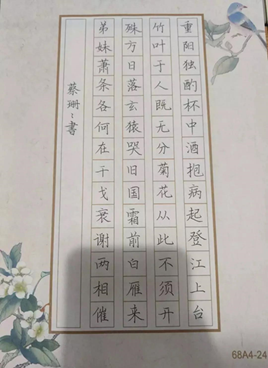 重阳独酌杯中酒抱病起登江上台
竹叶于人既无分菊花从此不须开
殊方日落玄猿哭旧国霜前白雁来
弟妹萧条各何在干戈衰谢两相催
蔡珊〻書
68A4-24